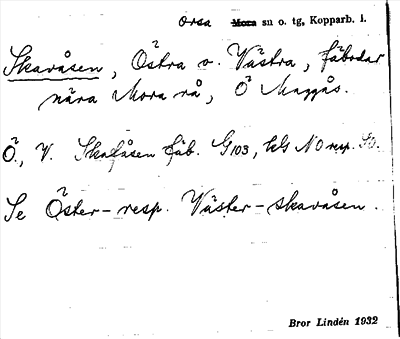 Orsa Mora sn o. tg, Kopparb. l.
Skavåsen, Östra o. Västra, fäbodar
nära Mora rå, Ö Maggås.
Ö., V. Skafåsen fäb. G103, hG NO resp. SO.
Se Öster- resp. Väster-skavåsen.
Bror Lindén 1932